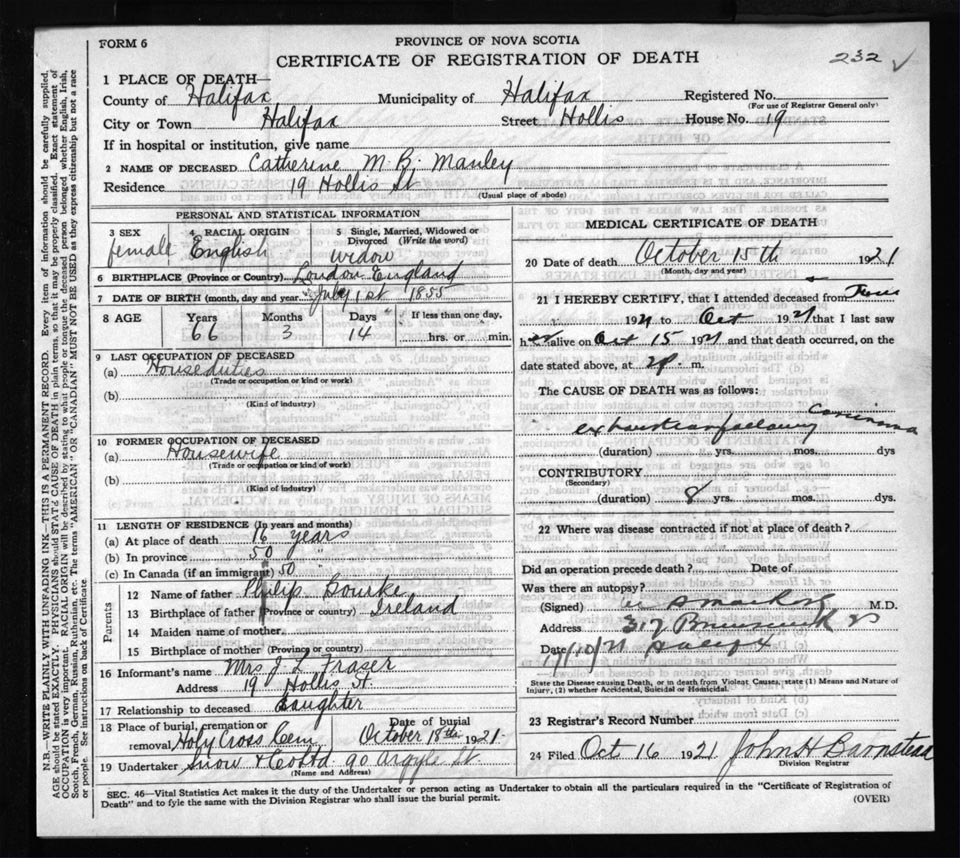 FORM 6
PROVINCE OF NOVA SCOTIA
CERTIFICATE OF REGISTRATION OF DEATH
232 ✓
1 PLACE OF DEATH—
County of Halifax Municipality of Halifax Registered No.
(For use of Registrar General only)
City or Town Halifax Street Hollis House No. 19
If in hospital or institution, give name
2 NAME OF DECEASED Catherine M. B. Manley
Residence 19 Hollis St
(Usual place of abode)
PERSONAL AND STATISTICAL INFORMATION
3 SEX 4 RACIAL ORIGIN 5 Single, Married, Widowed or Divorced (Write the word)
female English widow
6 BIRTHPLACE (Province or Country) London England
7 DATE OF BIRTH (month, day and year July 1st 1855
8 AGE Years Months Days If less than one day,
66 3 14 hrs. or min.
9 LAST OCCUPATION OF DECEASED
(a) House duties
(Trade or occupation or kind or work)
(b)
(Kind of industry)
10 FORMER OCCUPATION OF DECEASED
(a) Housewife
(Trade or occupation or kind or work)
(b)
(Kind of industry)
11 LENGTH OF RESIDENCE (In years and months)
(a) At place of death 16 years
(b) In province 50 "
(c) In Canada (if an immigrant) 50 "
Parents
12 Name of father Philip Bourke
13 Birthplace of father (Province or country) Ireland
14 Maiden name of mother
15 Birthplace of mother (Province or country)
16 Informant's name Mrs J. L. Fraser
Address 19 Hollis St.
17 Relationship to deceased Daughter
18 Place of burial, cremation or removal Holy Cross Cem Date of burial October 18th 1921.
19 Undertaker Snow & Co Ltd 90 Argyle St.
(Name and Address)
MEDICAL CERTIFICATE OF DEATH
20 Date of death October 15th 1921
(Month, day and year)
21 I HEREBY CERTIFY, that I attended deceased from
1921 to Oct 1921 that I last saw
her alive on Oct 15 1921 and that death occurred, on the
date stated above, at 2 p. m.
The CAUSE OF DEATH was as follows:
exhaustion following Carcinoma
(duration) yrs. mos. dys
CONTRIBUTORY
(Secondary)
(duration) 8 yrs. mos. dys.
22 Where was disease contracted if not at place of death?
Did an operation precede death? Date of
Was there an autopsy?
(Signed) M.D.
Address 317 Brunswick St
Date 17/10/21 Halifax
State the Disease causing Death, or in death from Violent Causes, state (1) Means and Nature of Injury, (2) whether Accidental, Suicidal or Homicidal.
23 Registrar's Record Number
24 Filed Oct 16 1921 John H Barnstead
Division Registrar
SEC. 46—Vital Statistics Act makes it the duty of the Undertaker or person acting as Undertaker to obtain all the particulars required in the "Certificate of Registration of
Death" and to fyle the same with the Division Registrar who shall issue the burial permit.
(OVER)
N.B. WRITE PLAINLY WITH UNFADING INK—THIS IS A PERMANENT RECORD. Every item of information should be carefully supplied.
AGE should be stated EXACTLY. PHYSICIANS should STATE CAUSE OF DEATH in plain terms, so that it may be properly classified. Exact statement of
OCCUPATION is very important. RACIAL ORIGIN will be described by stating to what people or tongue the deceased person belonged whether English, Irish,
Scotch, French, German, Russian, Ruthenian, etc. The terms "AMERICAN" OR "CANADIAN" MUST NOT BE USED as they express citizenship but not a race
or people. See instructions on back of Certificate